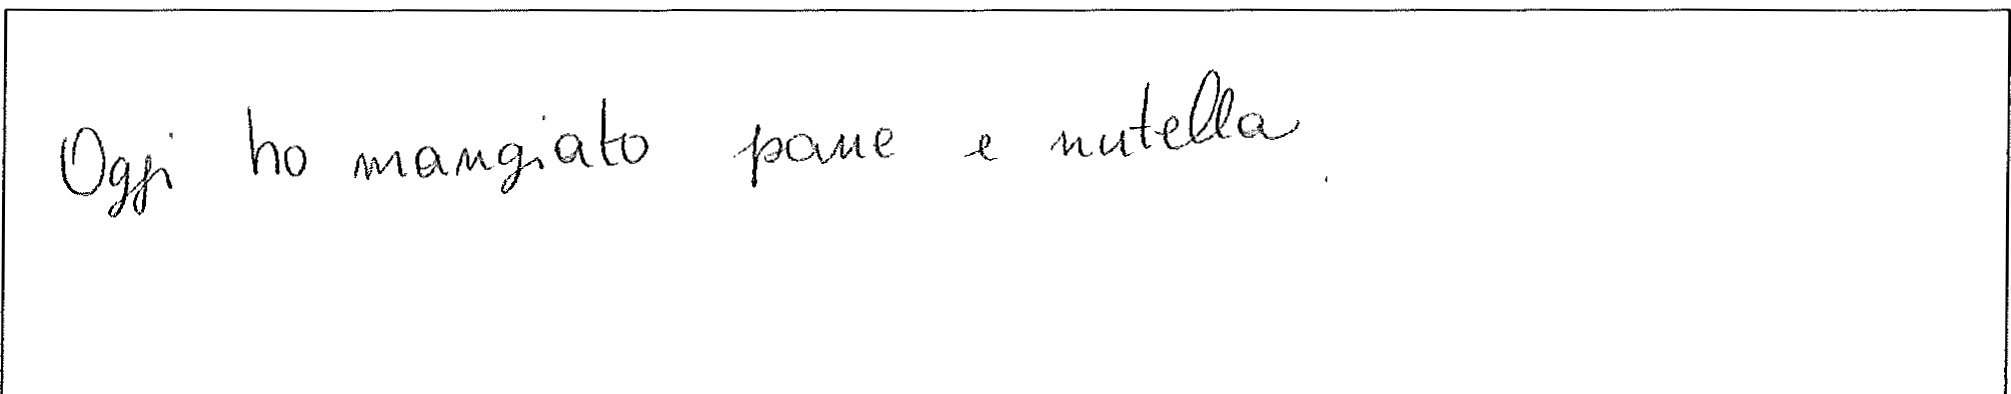 Oggi ho mangiato pane e nutella.